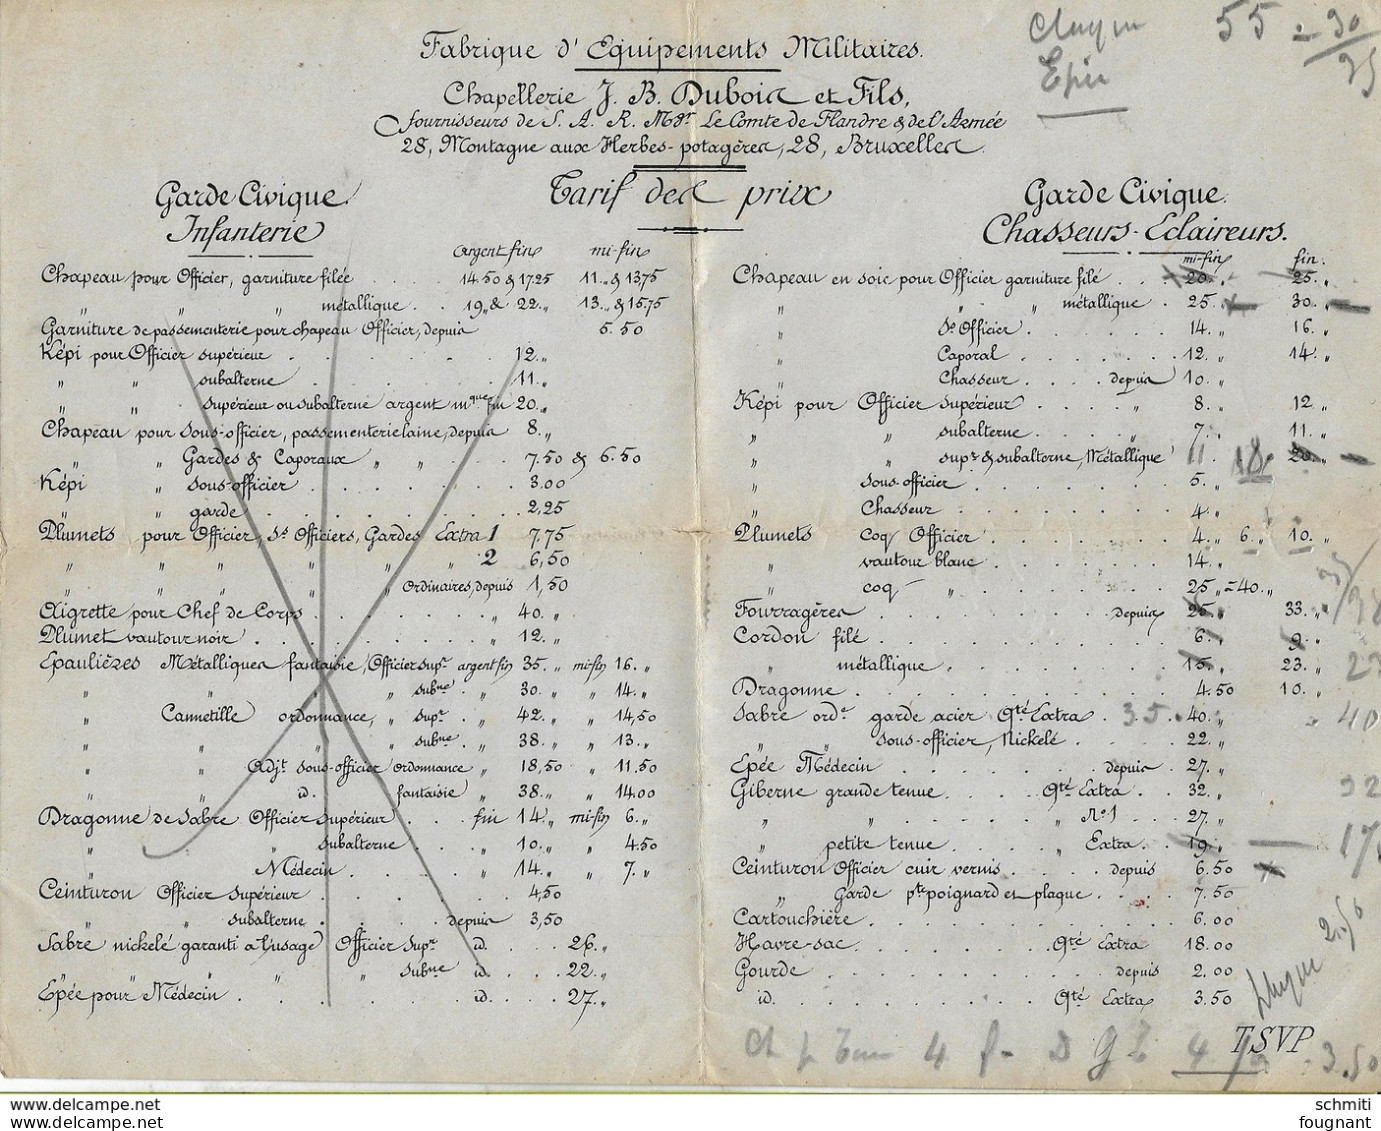 Fabrique d'Equipements Militaires.
Chapellerie J. B. Dubois et Fils,
fournisseurs de S. A. R. Mgr Le Comte de Flandre & de l'Armée
28, Montagne aux Herbes-potagères, 28, Bruxelles.
Tarif des prix
Garde Civique
Infanterie
argent fin mi-fin
Chapeau pour Officier, garniture filée . . . . 14.50 & 17.25 11. „ & 13.75
„ „ „ métallique . . 19 „ & 22. „ 13. „ & 15.75
Garniture de passementerie pour chapeau Officier, depuis 5.50
Képi pour Officier supérieur . . . . . 12. „
„ „ subalterne . . . . . 11. „
„ „ supérieur ou subalterne argent mque fin 20. „
Chapeau pour sous-officier, passementerie laine, depuis 8. „
„ „ Gardes & Caporaux „ „ 7.50 & 6.50
Képi „ sous-officier . . . . . 3.00
„ garde . . . . . 2,25
Plumets pour Officier, Ss Officiers, Gardes Extra 1 7.75
„ „ „ „ „ „ 2 6,50
„ „ „ „ „ ordinaires, depuis 1,50
Aigrette pour Chef de Corps . . . . . 40. „
Plumet vautour noir . . . . . 12. „
Epaulières Métalliques fantaisie, Officier supr argent fin 35. „ mi-fin 16. „
„ „ „ „ subne . „ 30. „ „ 14. „
„ Cannetille ordonnance, „ supr . „ 42. „ „ 14,50
„ „ „ „ subne . „ 38. „ „ 13. „
„ „ Adjt sous-officier ordonnance „ 18,50 „ 11.50
„ „ id. fantaisie „ 38. „ „ 14.00
Dragonne de Sabre Officier supérieur . . . fin 14. „ mi-fin 6. „
„ subalterne . . . „ 10. „ „ 4.50
„ Médecin . . . . „ 14. „ „ 7. „
Ceinturon Officier supérieur . . . . . 4,50
„ „ subalterne . . . . depuis 3,50
Sabre nickelé garanti à l'usage Officier supr id. . . . 26. „
„ „ „ „ subne id. . . . 22. „
Epée pour Médecin . . . . . id. . . . 27. „
Garde Civique.
Chasseurs-Eclaireurs.
mi-fin fin.
Chapeau en soie pour Officier garniture filé . . . 20. „ 25. „
„ „ „ métallique . 25. „ 30. „
„ Ss Officier . . . . . 14. „ 16. „
„ Caporal . . . . . 12. „ 14. „
„ Chasseur . . . . depuis 10. „
Képi pour Officier supérieur . . . . „ 8. „ 12 „
„ „ subalterne . . . . „ 7. „ 11. „
„ „ supr & subalterne, Métallique 11 . 18 20. „
„ sous-officier . . . . . 5. „
„ Chasseur . . . . . 4. „
Plumets coq Officier . . . . . 4. „ 6. „ 10. „
„ vautour blanc . . . . . 14. „
„ coq „ . . . . . 25 „ = 40. „
Fourragères . . . . . depuis 25. „ 33. „
Cordon filé . . . . . 6. „ 9. „
„ métallique . . . . . 15. „ 23. „
Dragonne . . . . . 4.50 10. „
Sabre ordce garde acier Qté Extra . 35. 40. „ 40
„ „ sous-officier, Nickelé . . . . 22. „
Epée Médecin . . . . . depuis 27. „
Giberne grande tenue . . . . Qté Extra . 32. „
„ „ . . . . „ No 1 . 27. „
„ petite tenue . . . . Extra . 19. „
Ceinturon Officier cuir vernis . . . . depuis 6.50
„ Garde pte poignard et plaque . . . . 7.50
Cartouchière . . . . . 6.00
Havre-sac . . . . . Qté Extra 18.00
Gourde . . . . . depuis 2.00
id. . . . . . Qté Extra 3.50
TSVP
55 = 30
2.50
3.50
schmiti
fougnant